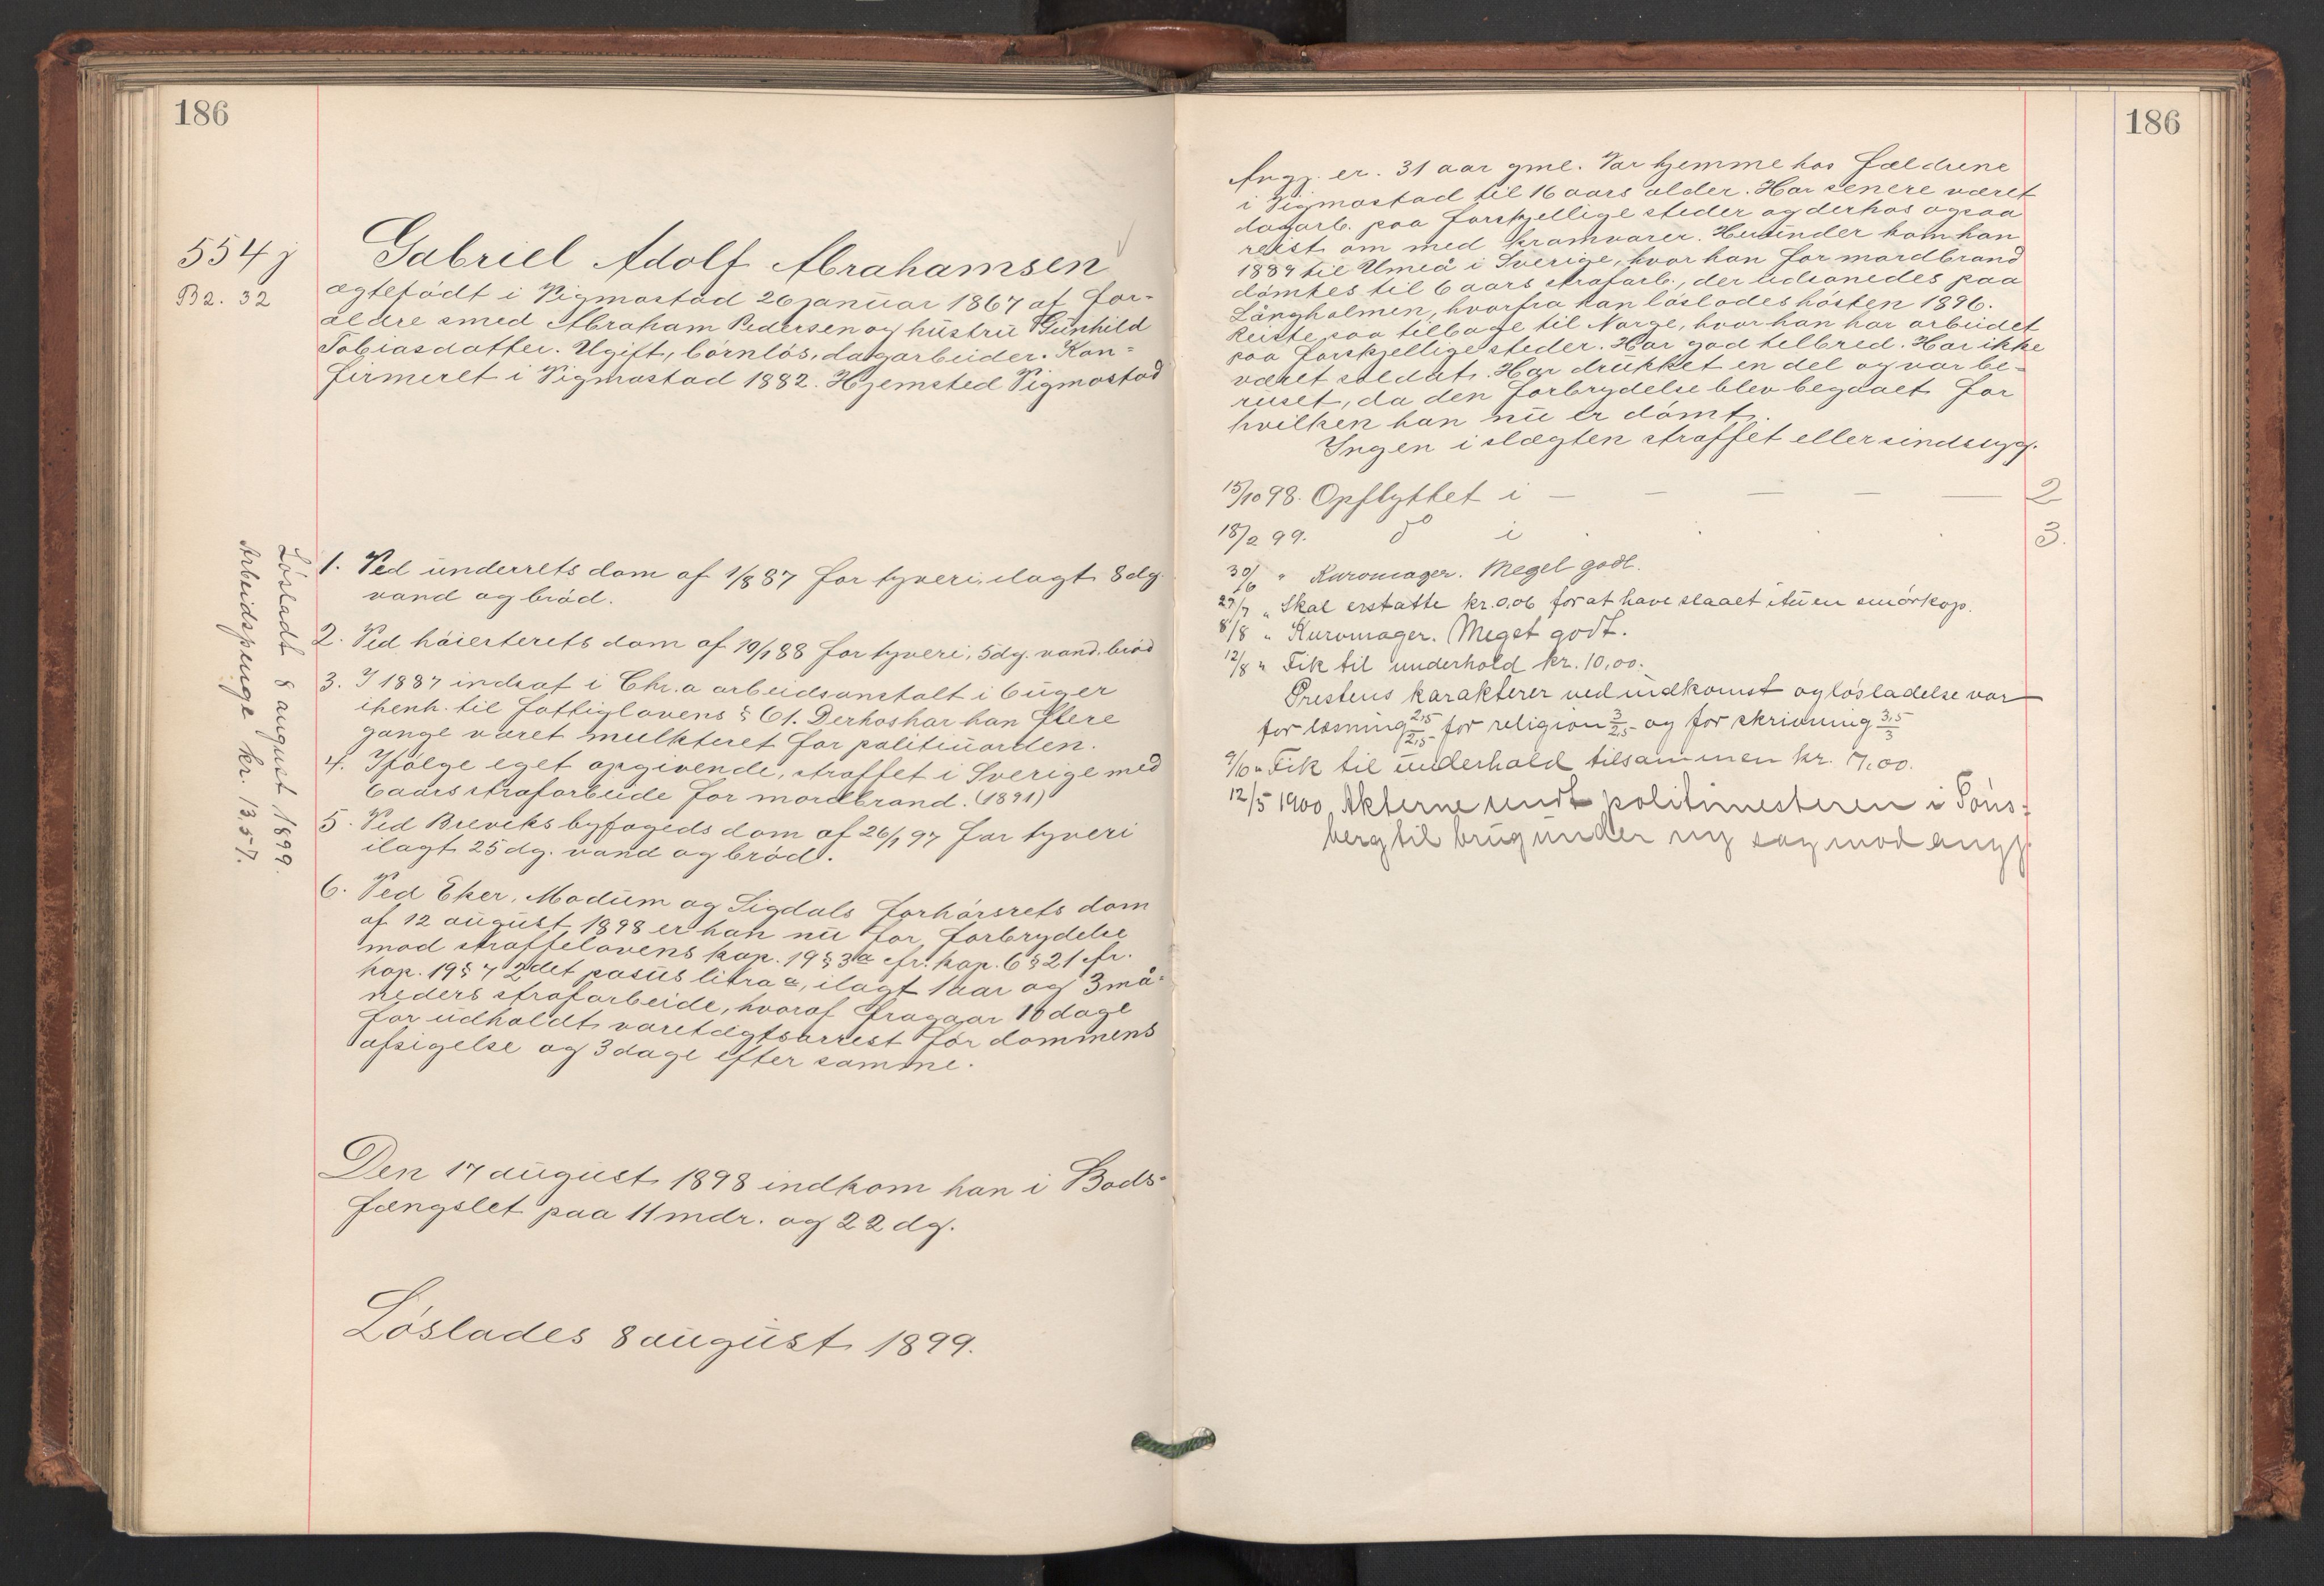 186
554 j
B2. 32
Gabriel Adolf Abrahamsen
ægtefødt i Vigmostad 26 januar 1867 af for-
ældre smed Abraham Pedersen og hustru Gunhild
Tobiasdatter. Ugift, børnløs, dagarbeider. Kon-
firmeret i Vigmostad 1882. Hjemsted Vigmostad
Løsladt 8 august 1899.
Arbeidspenge kr. 13,57.
1. Ved underrets dom af 1/8 87 for tyveri ilagt 8 dg.
vand og brød.
2. Ved høiesterets dom af 19/1 88 for tyveri, 5 dg. vand. brød
3. I 1887 indsat i Chr.a arbeidsanstalt i 6 uger
ihenh. til fattiglovens § 61. Derhos har han flere
gange været mulkteret for politiuorden.
4. Ifølge eget opgivende, straffet i Sverige med
6 aars strafarbeide for mordbrand. (1891)
5. Ved Breviks byfogeds dom af 26/1 97 for tyveri
ilagt 25 dg. vand og brød.
6. Ved Eker, Modum og Sigdals forhørsrets dom
af 12 august 1898 er han nu for forbrydelse
mod straffelovens kap. 19 § 3a cfr. kap. 6 § 21 cfr.
kap. 19 § 7 2det pasus litra a, ilagt 1 aar og 3 må-
neders strafarbeide, hvoraf fragaar 10 dage
for udholdt varetægtsarrest før dommens
afsigelse og 3 dage efter samme.
Den 17 august 1898 indkom han i Bods-
fængslet paa 11 mdr. og 22 dg.
Løslades 8 august 1899.
186
Angj. er. 31 aar gml. Var hjemme hos fældrene
i Vigmostad til 16 aars alder. Har senere været
dagarb. paa forskjellige steder og derhos ogsaa
reist om med kramvarer. Herunder kom han
1889 til Umeå i Sverige, hvor han for mordbrand
dømtes til 6 aars strafarb., der udsonedes paa
Långholmen, hvorfra han løslodes høsten 1896.
Reiste saa tilbage til Norge, hvor han har arbeidet
paa forskjellige steder. Har god helbred. Har ikke
været soldat. Har drukket en del og var be-
ruset, da den forbrydelse blev begaaet for
hvilken han nu er dømt.
Ingen i slægten straffet eller sindssyg.
15/10 98. Opflyttet i — — — — — 2
18/2 99. do i . . . 3.
30/6 " Kurvmager. Meget godt.
27/7 " Skal erstatte kr. 0,06 for at have slaaet itu en smørkop.
8/8 " Kurvmager. Meget godt.
12/8 " Fik til underhold kr. 10,00.
Prestens karakterer ved indkomst og løsladelse var
for læsning 2,5/2,5 for religion 3/2,5 og for skrivning 3,5/3
9/10 " Fik til underhold tilsammen kr. 7,00.
12/5 1900 Akterne sendt politimesteren i Tøns-
berg til brug under ny sag mod angj.